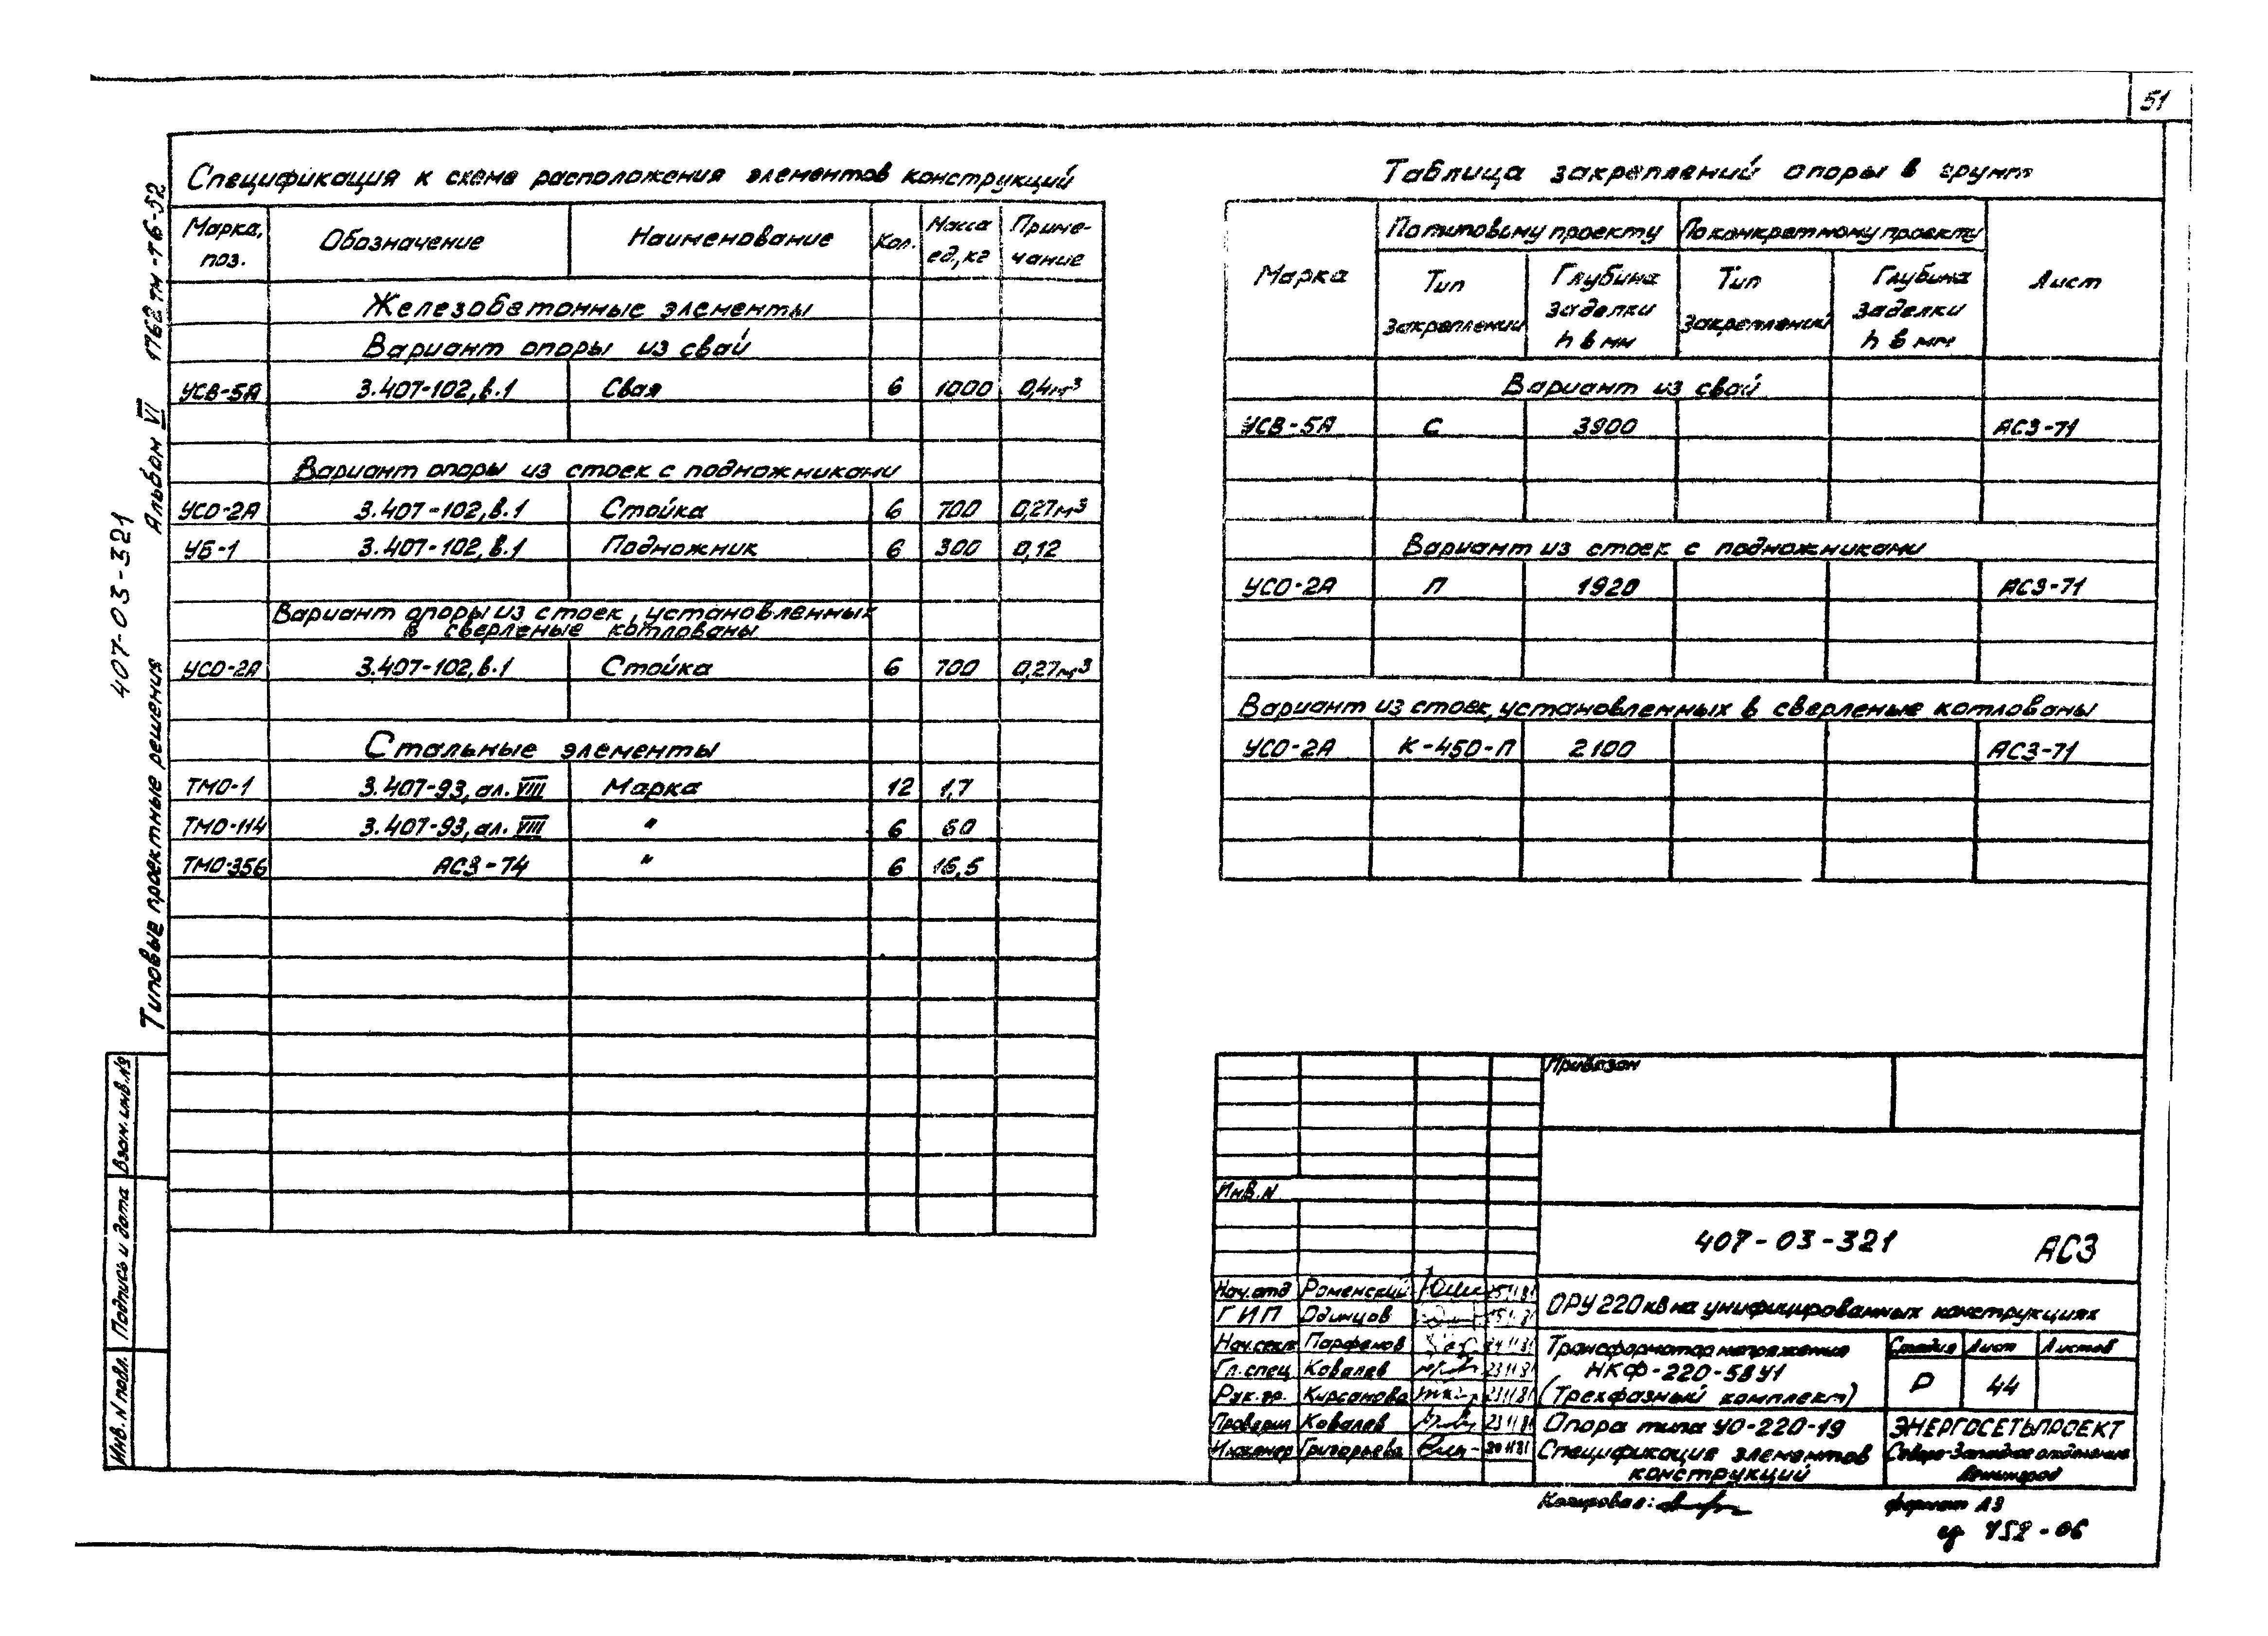 51
Спецификация к схеме расположения элементов конструкций
Марка, поз. Обозначение Наименование Кол. Масса ед, кг Приме-чание
Железобетонные элементы
Вариант опоры из свай
УСВ-5А 3.407-102, в.1 Свая 6 1000 0,4м³
Вариант опоры из стоек с подножниками
УСО-2А 3.407-102, в.1 Стойка 6 700 0,27м³
УБ-1 3.407-102, в.1 Подножник 6 300 0,12
Вариант опоры из стоек, установленных
в сверленые котлованы
УСО-2А 3.407-102, в.1 Стойка 6 700 0,27м³
Стальные элементы
ТМО-1 3.407-93, ал. VIII Марка 12 1,7
ТМО-114 3.407-93, ал. VIII " 6 60
ТМО-356 АС3-74 " 6 16,5
Таблица закреплений опоры в грунт
Марка По типовому проекту По конкретному проекту Лист
Тип закреплений Глубина заделки h в мм Тип закреплений Глубина заделки h в мм
Вариант из свай
УСВ-5А С 3900 АС3-71
Вариант из стоек с подножниками
УСО-2А П 1920 АС3-71
Вариант из стоек, установленных в сверленые котлованы
УСО-2А К-450-П 2100 АС3-71
407-03-321
Типовые проектные решения Альбом VI 1762тм-т6-52
Взам. инв. №
Подпись и дата
Инв. N подл.
Привязан
Инв. N
407-03-321 АС3
Нач. отд Роменский
ГИП Одинцов
Нач. сект Парфенов
Гл. спец Ковалев 23 11 81
Рук. гр. Кирсанова 23 11 81
Проверил Ковалев 23 11 81
Инженер Григорьева 20 11 81
ОРУ 220 кВ на унифицированных конструкциях
Трансформатор напряжения
НКФ-220-58У1
(Трехфазный комплект)
Стадия Лист Листов
Р 44
Опора типа УО-220-19
Спецификация элементов
конструкций
ЭНЕРГОСЕТЬПРОЕКТ
Северо-Западное отделение
Ленинград
Копировал:
формат А3